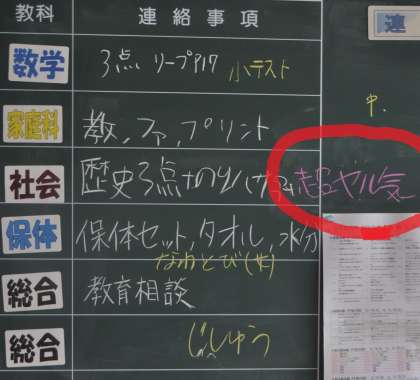 教科 連絡事項
連
数学 3点 リープP17 小テスト
中.
家庭科 教,ファ,プリント
社会 歴史3点+のり,ハサミ, 超ヤル気
保体 保体セット,タオル,水分
なわとび(大)
総合 教育相談
総合 じしゅう